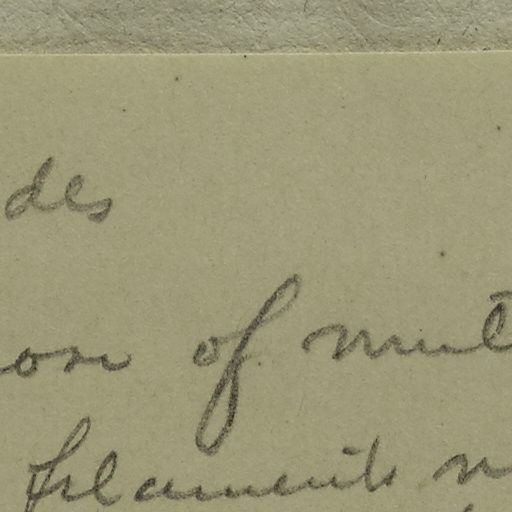 des
on of mut
filaments